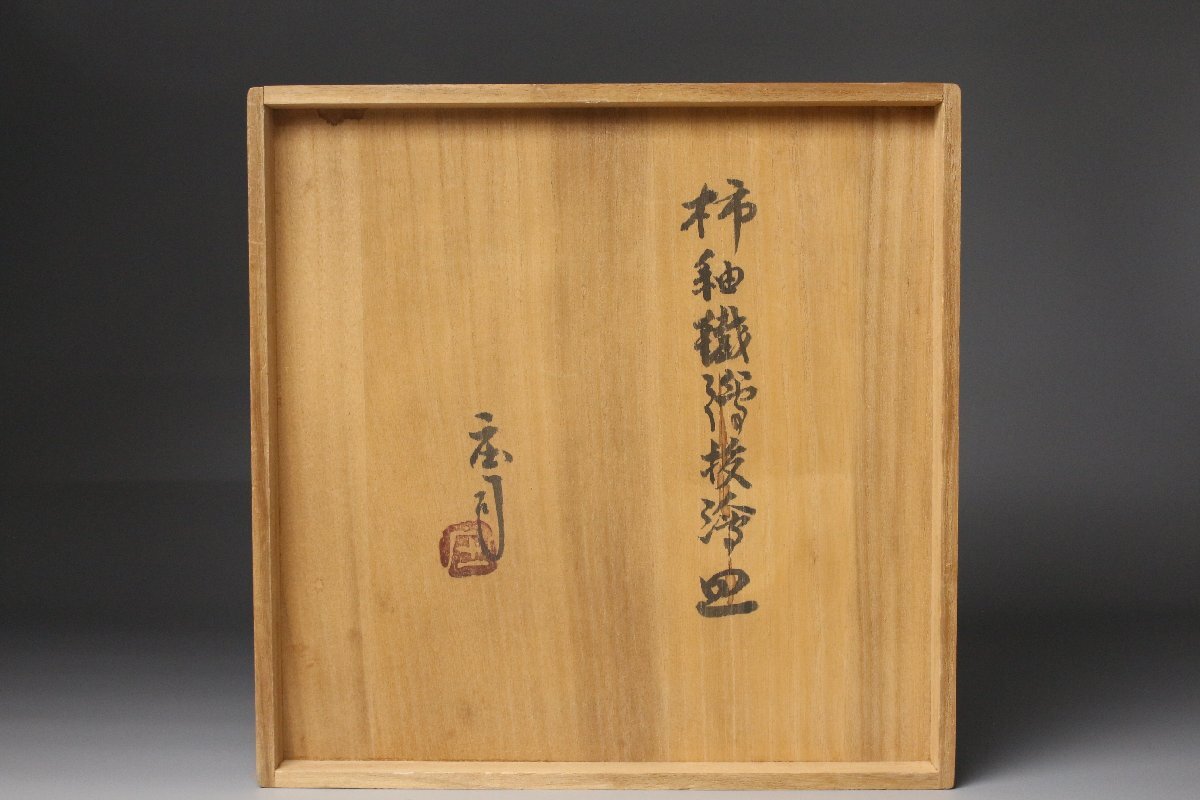 柿釉鐵繪抜繪皿
庄司
庄